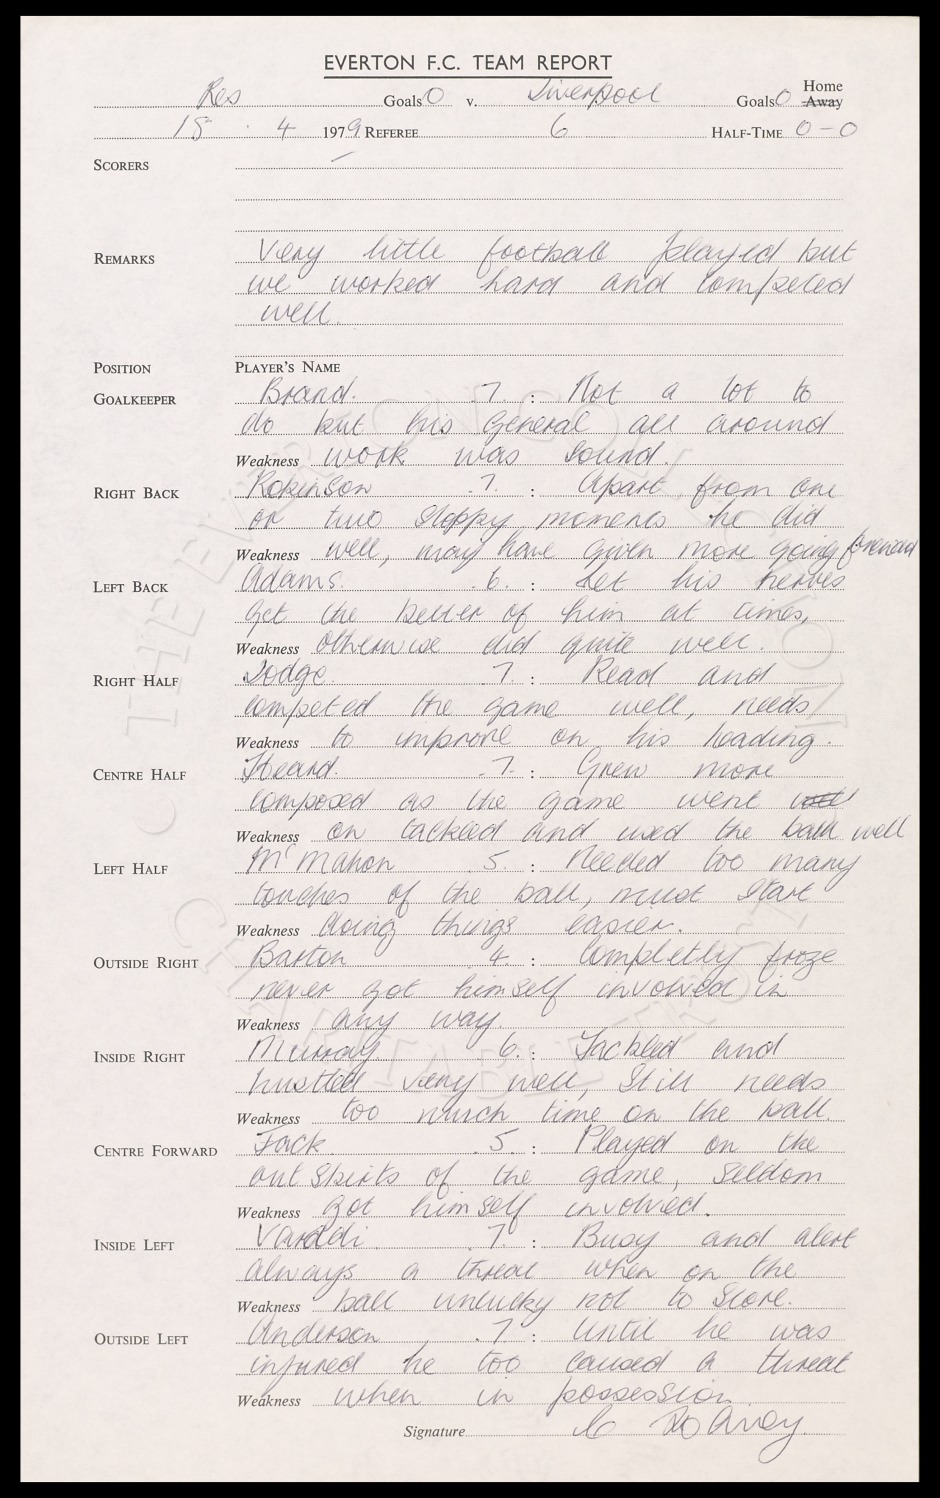 EVERTON F.C. TEAM REPORT
Res Goals 0 v. Liverpool Goals 0 Home Away
18 . 4 1979 REFEREE 6 HALF-TIME 0-0
SCORERS –
REMARKS Very little football played but
we worked hard and competed
well.
POSITION PLAYER'S NAME
GOALKEEPER Brand. 7. : Not a lot to
do but his general all around
Weakness work was sound.
RIGHT BACK Robinson 7. : Apart from one
or two sloppy moments he did
Weakness well, may have given more going forward
LEFT BACK Adams. 6. : Let his nerves
get the better of him at times,
Weakness otherwise did quite well.
RIGHT HALF Dodge. 7. : Read and
competed the game well, needs
Weakness to improve on his heading.
CENTRE HALF Heard. 7. : Grew more
composed as the game went well
Weakness on tackled and used the ball well
LEFT HALF McMahon 5. : Needed too many
touches of the ball, must start
Weakness doing things easier.
OUTSIDE RIGHT Barton 4. : Completly froze
never got himself involved in
Weakness any way.
INSIDE RIGHT Murray. 6. : Tackled and
hustled very well, still needs
Weakness too much time on the ball.
CENTRE FORWARD Jack 5. : Played on the
outskirts of the game, seldom
Weakness got himself involved.
INSIDE LEFT Varadi 7. : Busy and alert
always a threat when on the
Weakness ball unlucky not to score.
OUTSIDE LEFT Anderson 7 : Until he was
injured he too caused a threat
Weakness when in possession.
Signature C
© THE EVERTON COLLECTION CHARITABLE TRUST